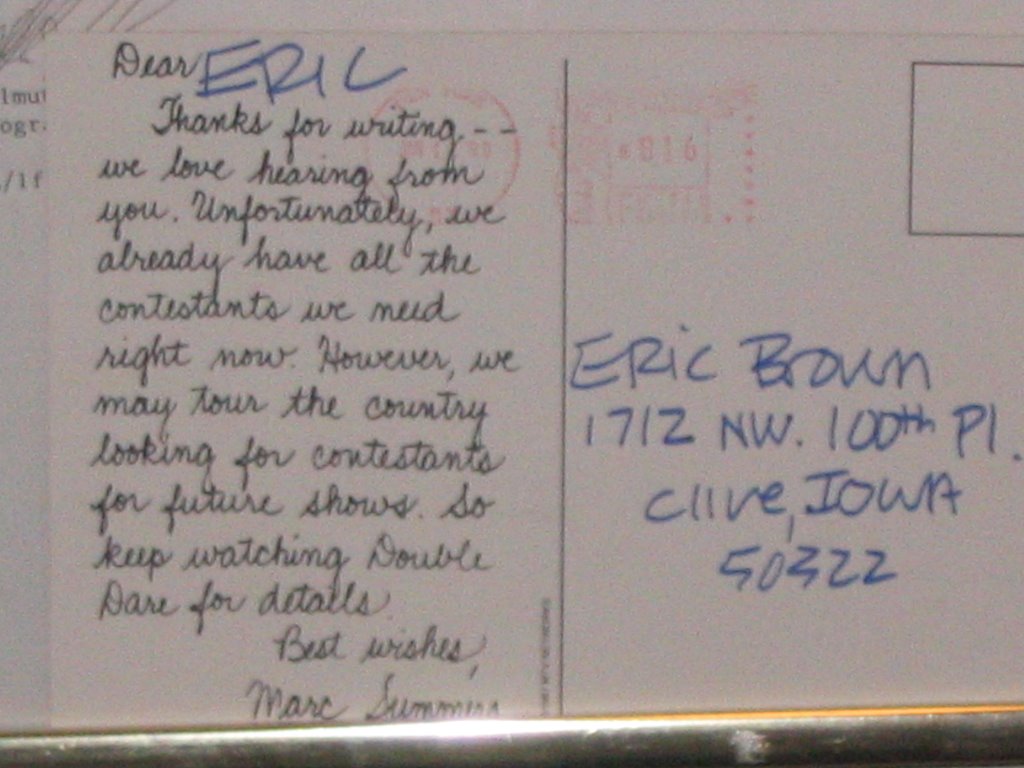 Dear ERIC
Thanks for writing --
we love hearing from
you. Unfortunately, we
already have all the
contestants we need
right now. However, we
may tour the country
looking for contestants
for future shows. So
keep watching Double
Dare for details.
Best wishes,
Marc Summers
ERIC Brown
1712 NW. 100th Pl.
Clive, IOWA
50322
lmut
ogr.
/lf